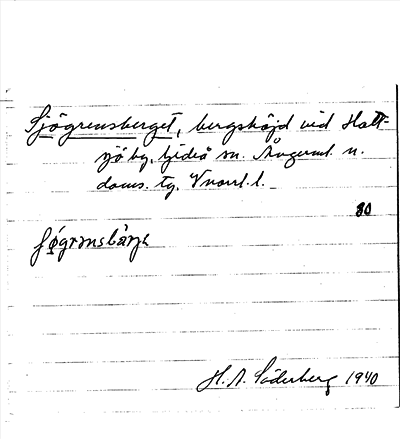 Sjögrensberget, bergshöjd ved Hatt-
sjö by, Gideå sn. Ångerml. n.
doms. tg. Vnorrl. l.
80
H. A. Söderberg 1940